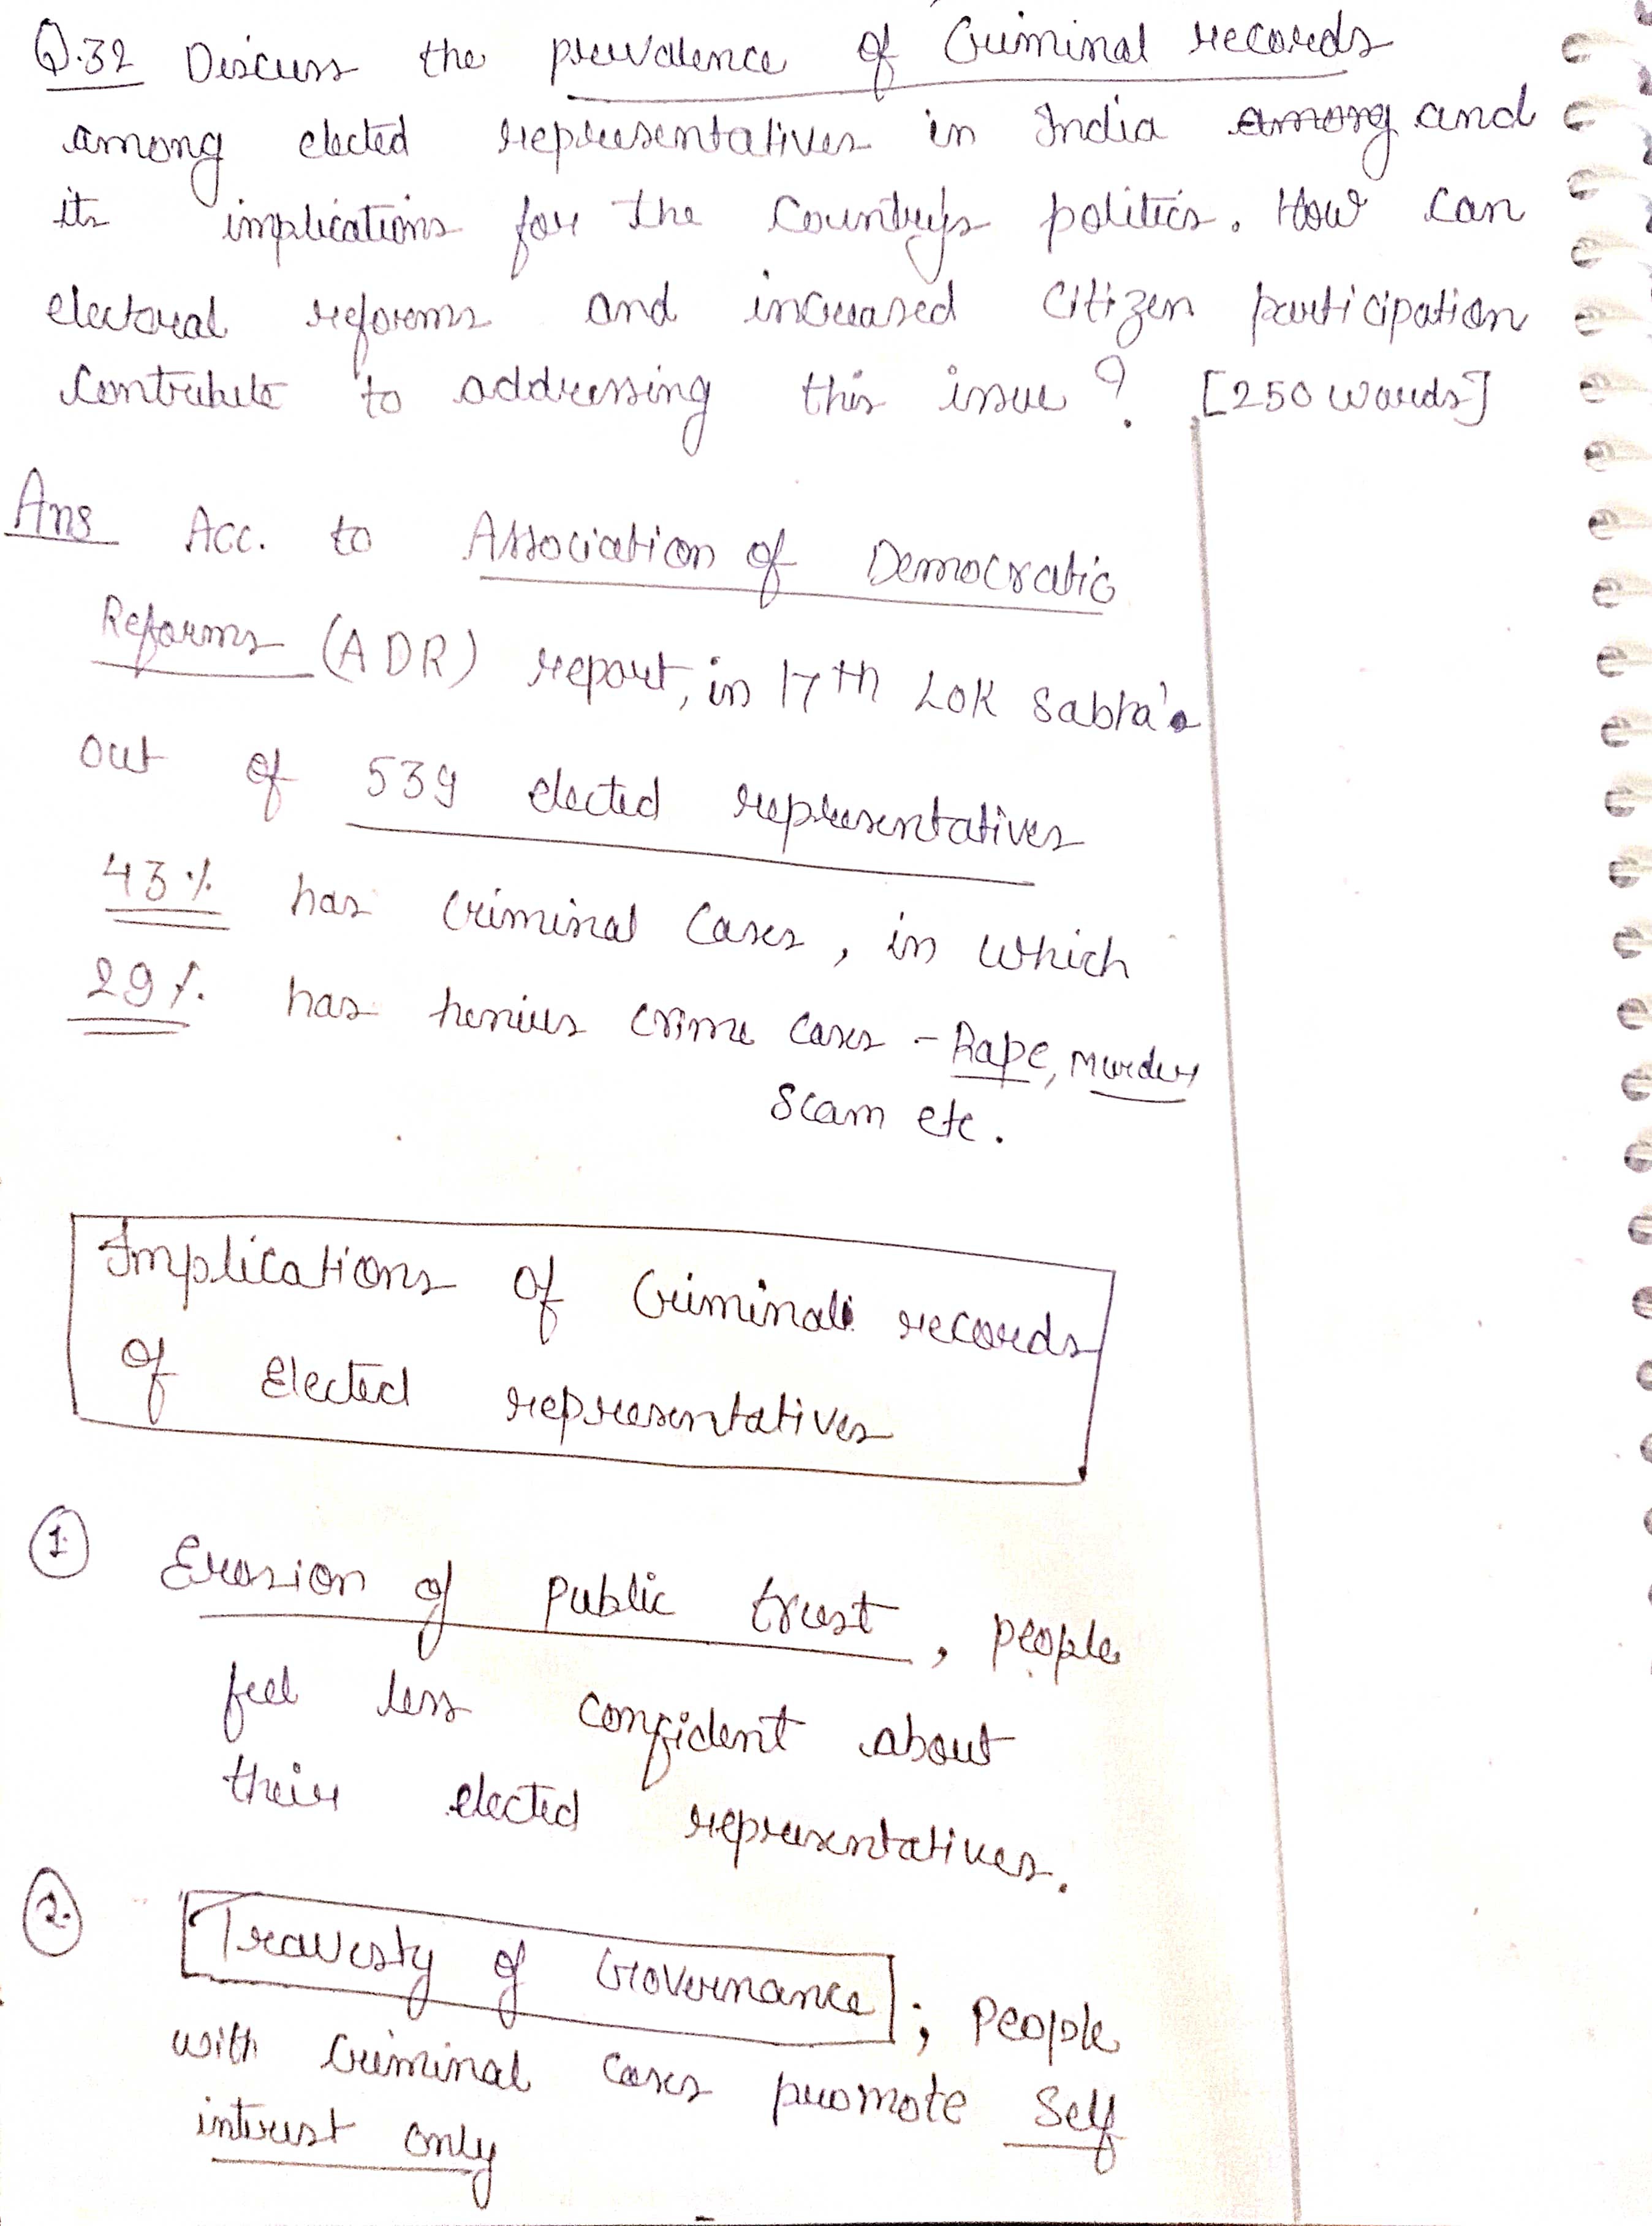 Q.32 Discuss the prevalence of Criminal records
among elected representatives in India among and
its implications for the Country's politics. How can
electoral reforms and increased citizen participation
Contribute to addressing this issue? [250 words]
Ans Acc. to Association of Democratic
Reforms (ADR) report, in 17th Lok Sabha's
out of 539 elected representatives
43% has Criminal Cases, in which
29% has henius crime cases - Rape, Murder
Scam etc.
Implications of Criminal records
of Elected representatives
1. Erosion of public trust, people
feel less confident about
their elected representatives.
2. Travesty of Governance; People
with Criminal cases promote Self
interest only